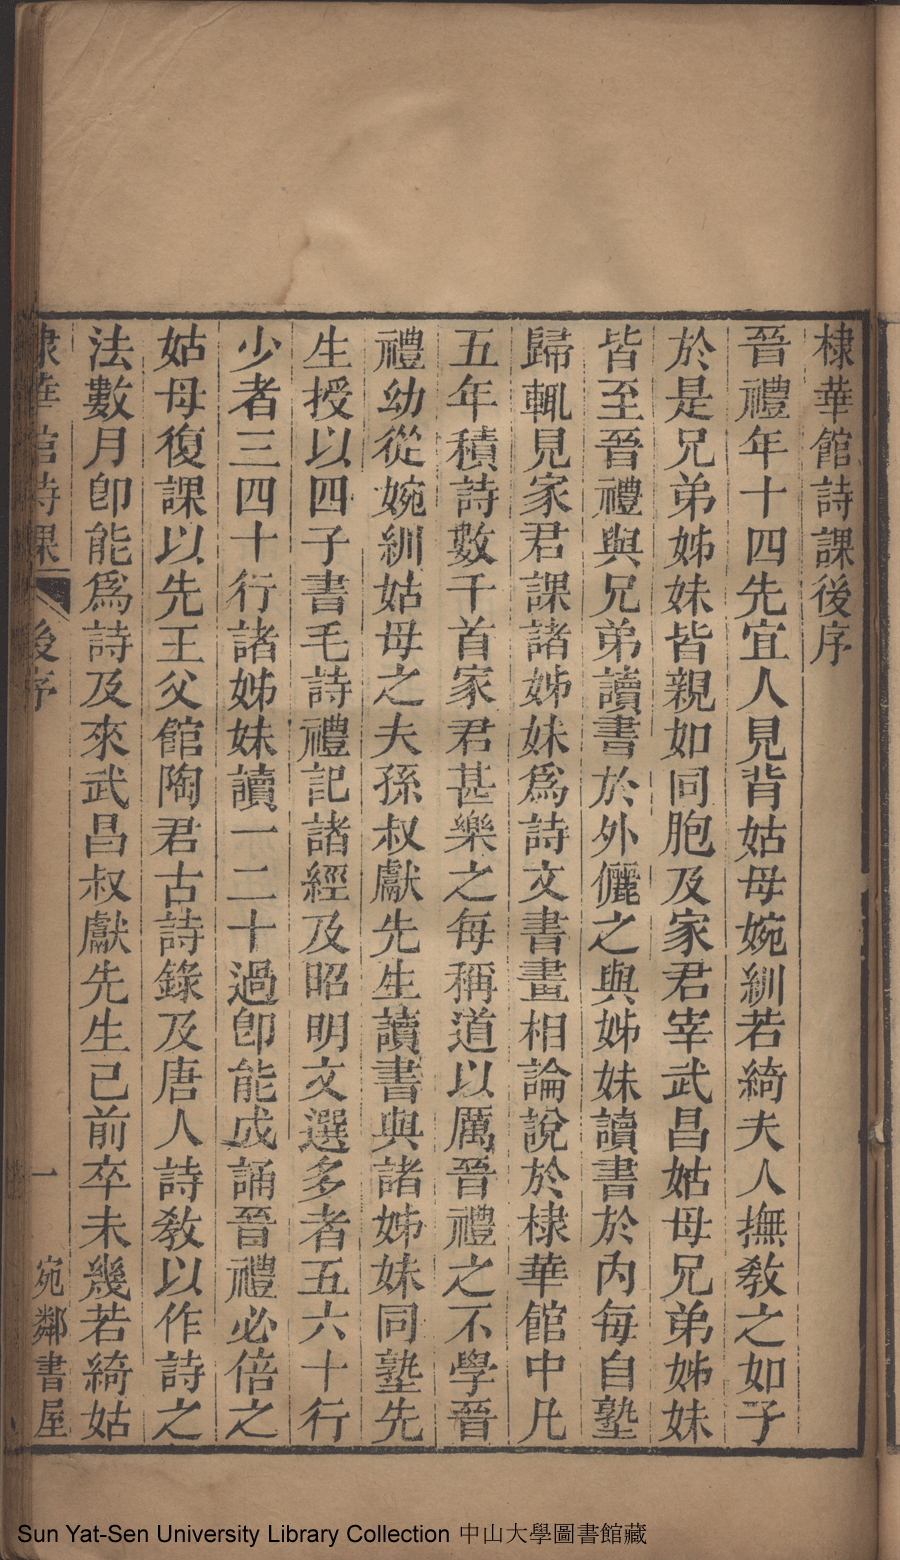 棣華館詩課後序
晉禮年十四先宜人見背姑母婉紃若綺夫人撫教之如子
於是兄弟姊妹皆親如同胞及家君宰武昌姑母兄弟姊妹
皆至晉禮與兄弟讀書於外儷之與姊妹讀書於內每自塾
歸輒見家君課諸姊妹爲詩文書畫相論說於棣華館中凡
五年積詩數千首家君甚樂之每稱道以厲晉禮之不學晉
禮幼從婉紃姑母之夫孫叔獻先生讀書與諸姊妹同塾先
生授以四子書毛詩禮記諸經及昭明文選多者五六十行
少者三四十行諸姊妹讀一二十過卽能成誦晉禮必倍之
姑母復課以先王父館陶君古詩錄及唐人詩教以作詩之
法數月卽能爲詩及來武昌叔獻先生已前卒未幾若綺姑
棣華館詩課 後序 一 宛鄰書屋
Sun Yat-Sen University Library Collection 中山大學圖書館藏